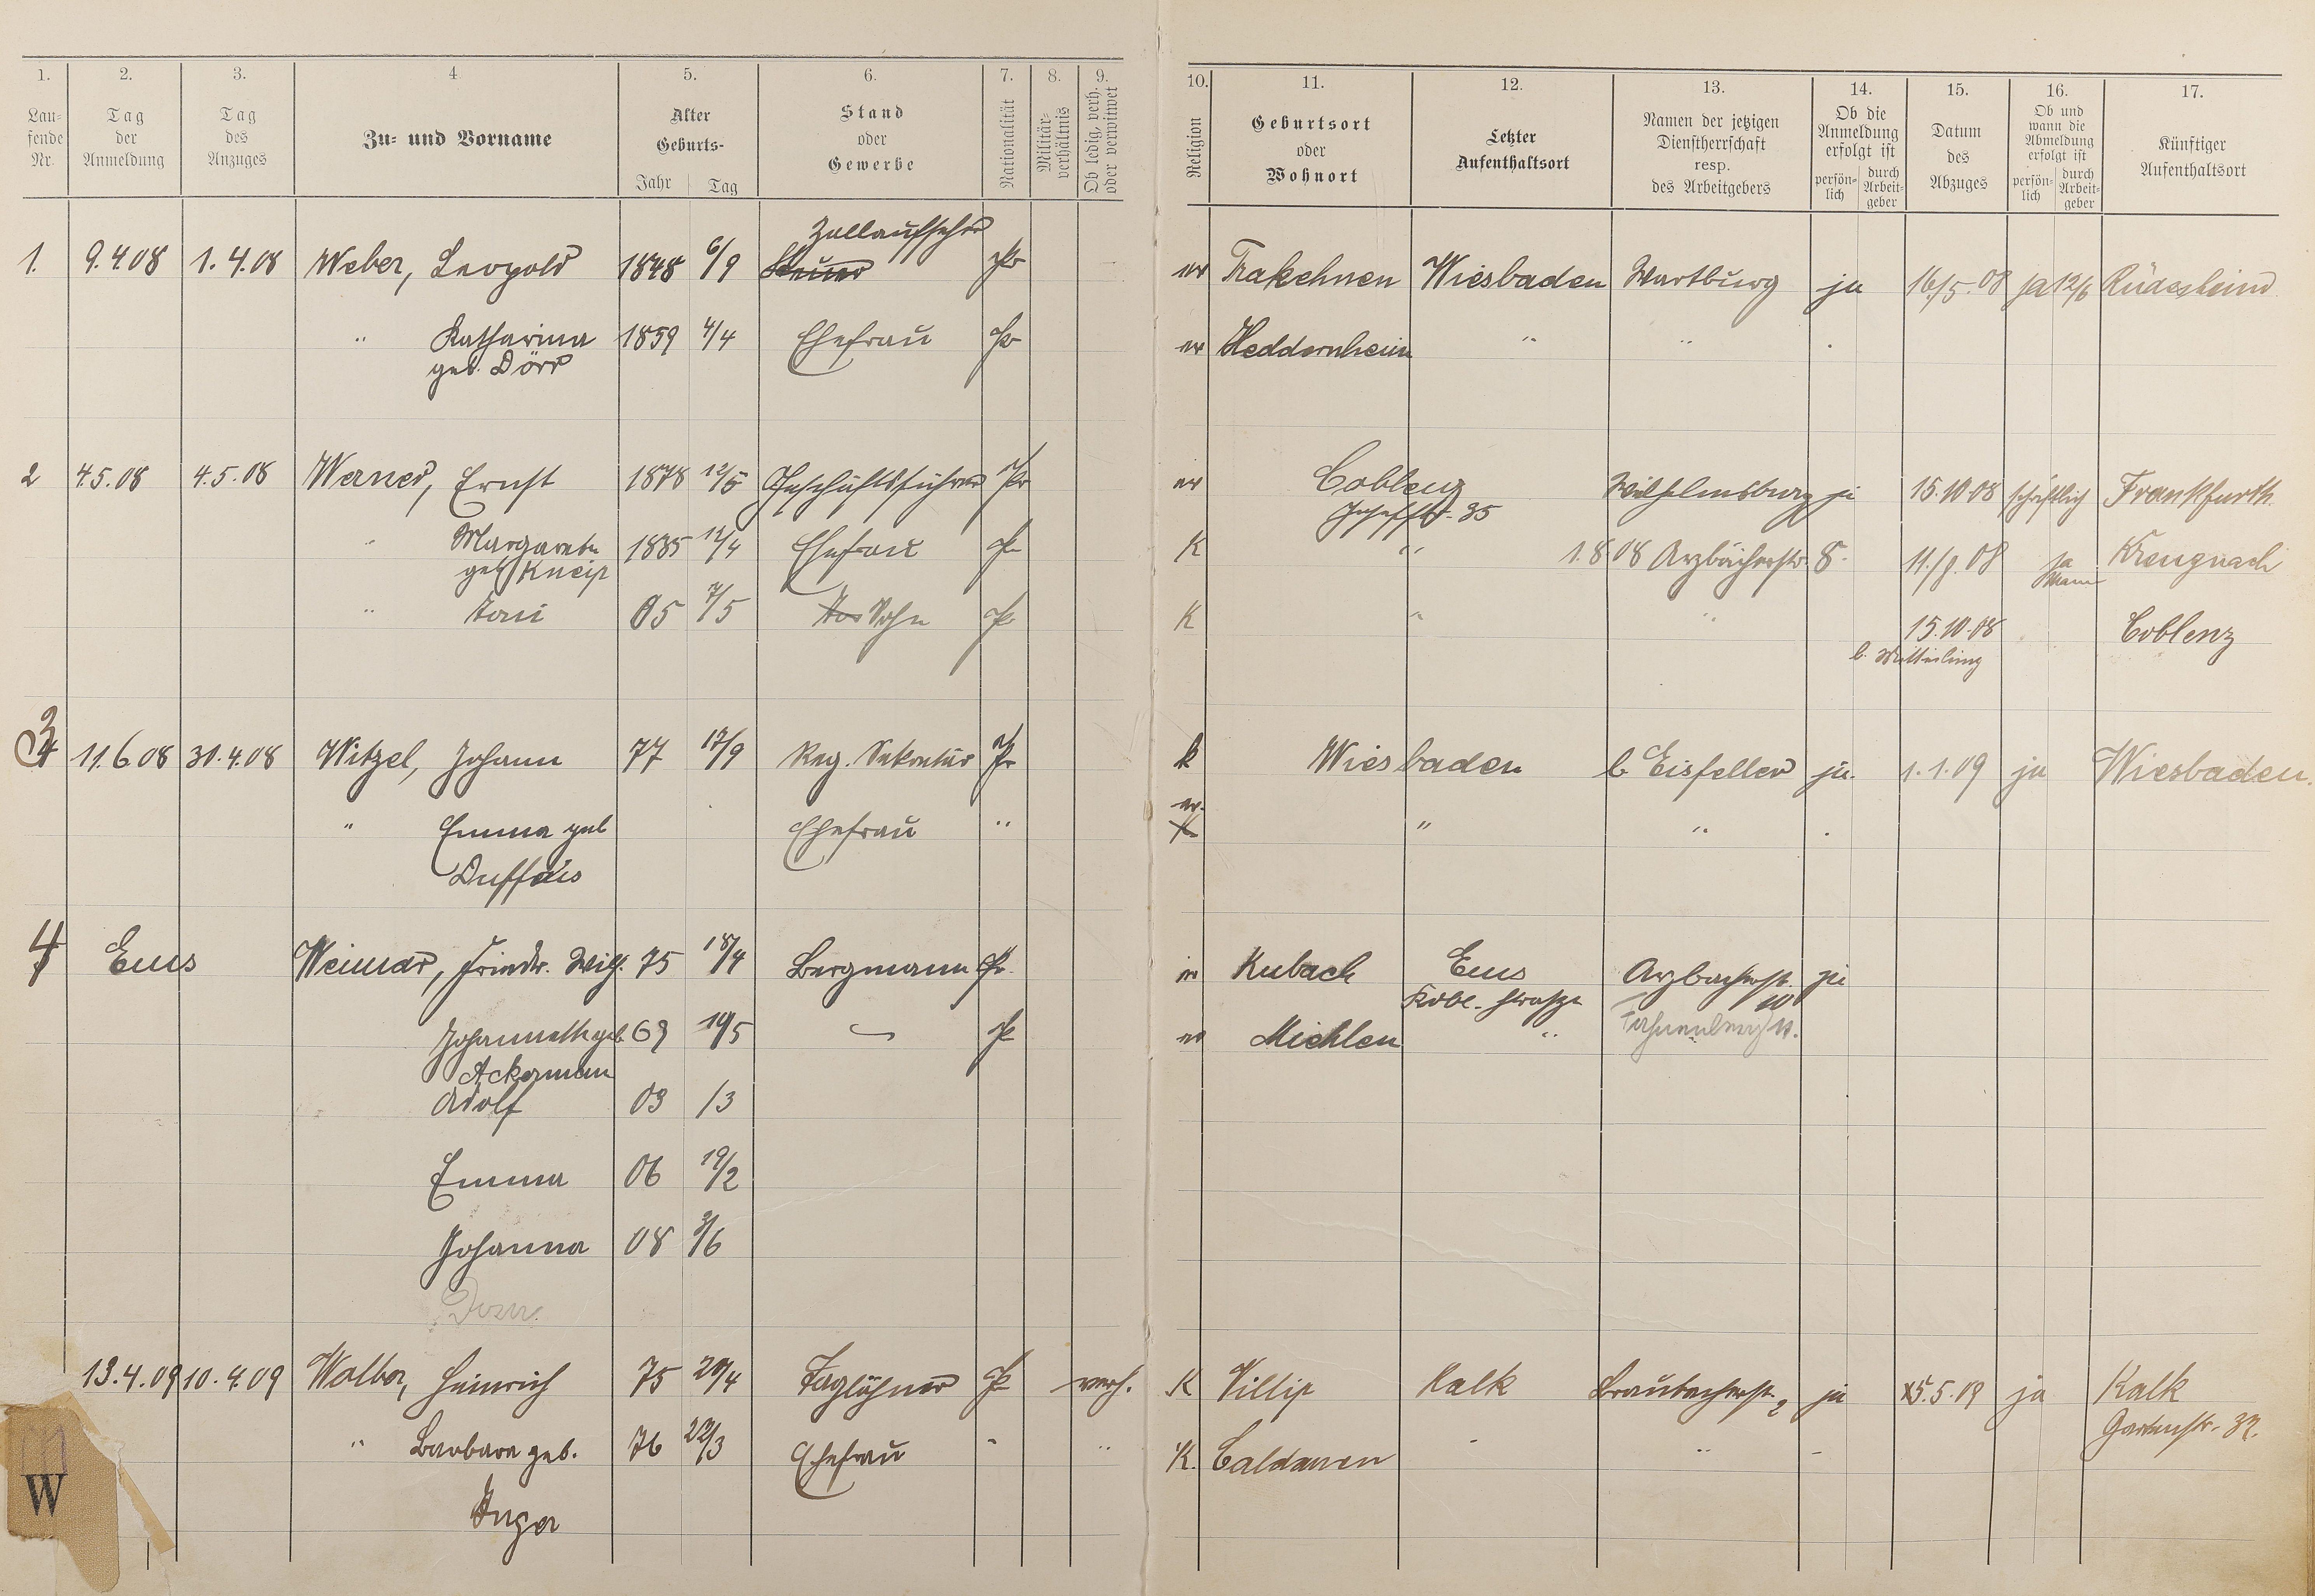 1. 2. 3. 4 5. 6. 7. 8. 9. 10. 11. 12. 13. 14. 15. 16. 17.
Lau-
fende
Nr.
Tag
der
Anmeldung
Tag
des
Anzuges
Zu- und Vorname
Alter
Geburts-
Jahr Tag
Stand
oder
Gewerbe
Nationalität
Militär-
verhältnis
Ob ledig, verh.
oder verwitwet
Religion
Geburtsort
oder
Wohnort
Letzter
Aufenthaltsort
Namen der jetzigen
Dienstherrschaft
resp.
des Arbeitgebers
Ob die
Anmeldung
erfolgt ist
persön-
lich
durch
Arbeit-
geber
Datum
des
Abzuges
Ob und
wann die
Abmeldung
erfolgt ist
persön-
lich
durch
Arbeit-
geber
Künftiger
Aufenthaltsort
Zollaufseher
1. 9.4.08 1.4.08 Weber, Leopold 1848 6/9 Pr ev Trakehnen Wiesbaden Wartburg ja 16/5.08 ja 12/6 Rüdesheim
" Katharina 1859 4/4 Ehefrau Pr ev Heddernheim " "
geb. Dörr
2 4.5.08 4.5.08 Werner, Ernst 1878 12/5 Geschäftsführer Pr ev Coblenz Wilhelmsburg ja 15.10.08 schriftlich Frankfurth.
Josefstr. 35
" Margarete 1885 12/4 Ehefrau Pr K " 1.8.08 Arzbächerstr. 8. 11/9.08 ja Kreuznach
geb Kneip Mann
" Toni 05 7/5 Sohn Pr K " " 15.10.08 Coblenz
l. Mitteilung
3 11.6.08 31.4.08 Witzel, Johann 77 17/9 Reg. Sekretär Pr k Wiesbaden b Eisfeller ja. 1.1.09 ja Wiesbaden.
ev.
" Emma geb Ehefrau " " "
Duffais
4 Ems Weimar, Friedr. Wilh. 75 18/4 Bergmann Pr. ev Kubach Ems Arzbacherst. ja
Kobl. strasze 10
Johannette geb. 69 14/5 Pr ev Miehlen "
Ackermann
Adolf 03 /3
Emma 06 19/2
Johanna 08 3/6
13.4.09 10.4.09 Walbor, Heinrich 75 20/4 Taglöhner Pr verh. K Villip Kalk Braubacherst. 2 ja 15.5.09 ja Kalk
Gartenstr. 32.
" Barbara geb. 76 22/3 Ehefrau " " K. Caldauen " " -
Unger
W